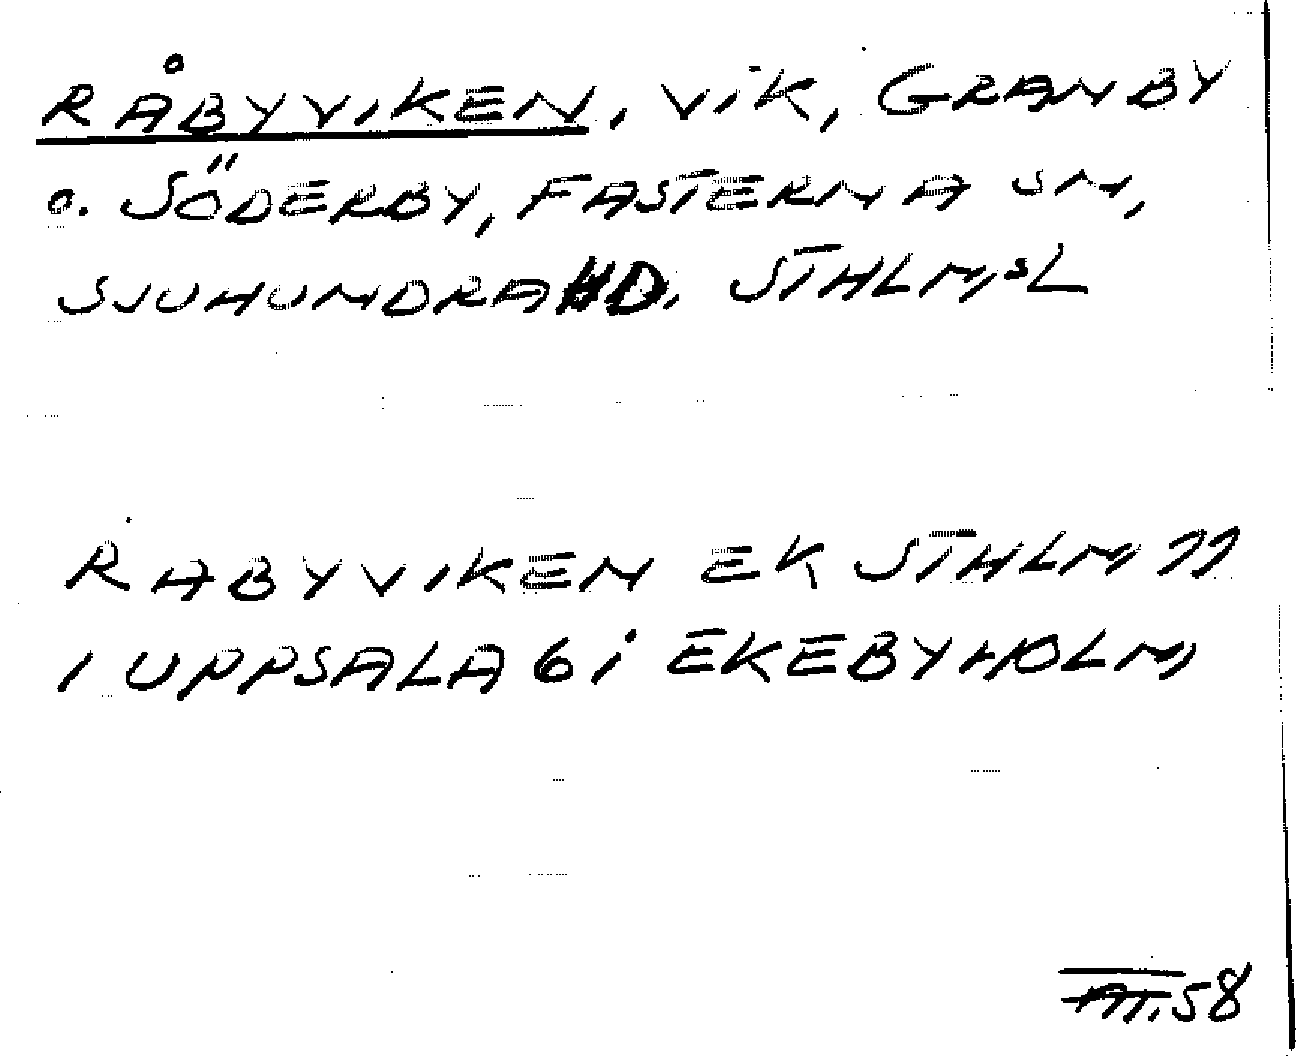 RÅBYVIKEN, VIK, GRANBY
o. SÖDERBY, FASTERNA SN,
SJUHUNDRA HD. STHLMSL
RÅBYVIKEN EK STHLM 77
1 UPPSALA 6i EKEBYHOLM
58